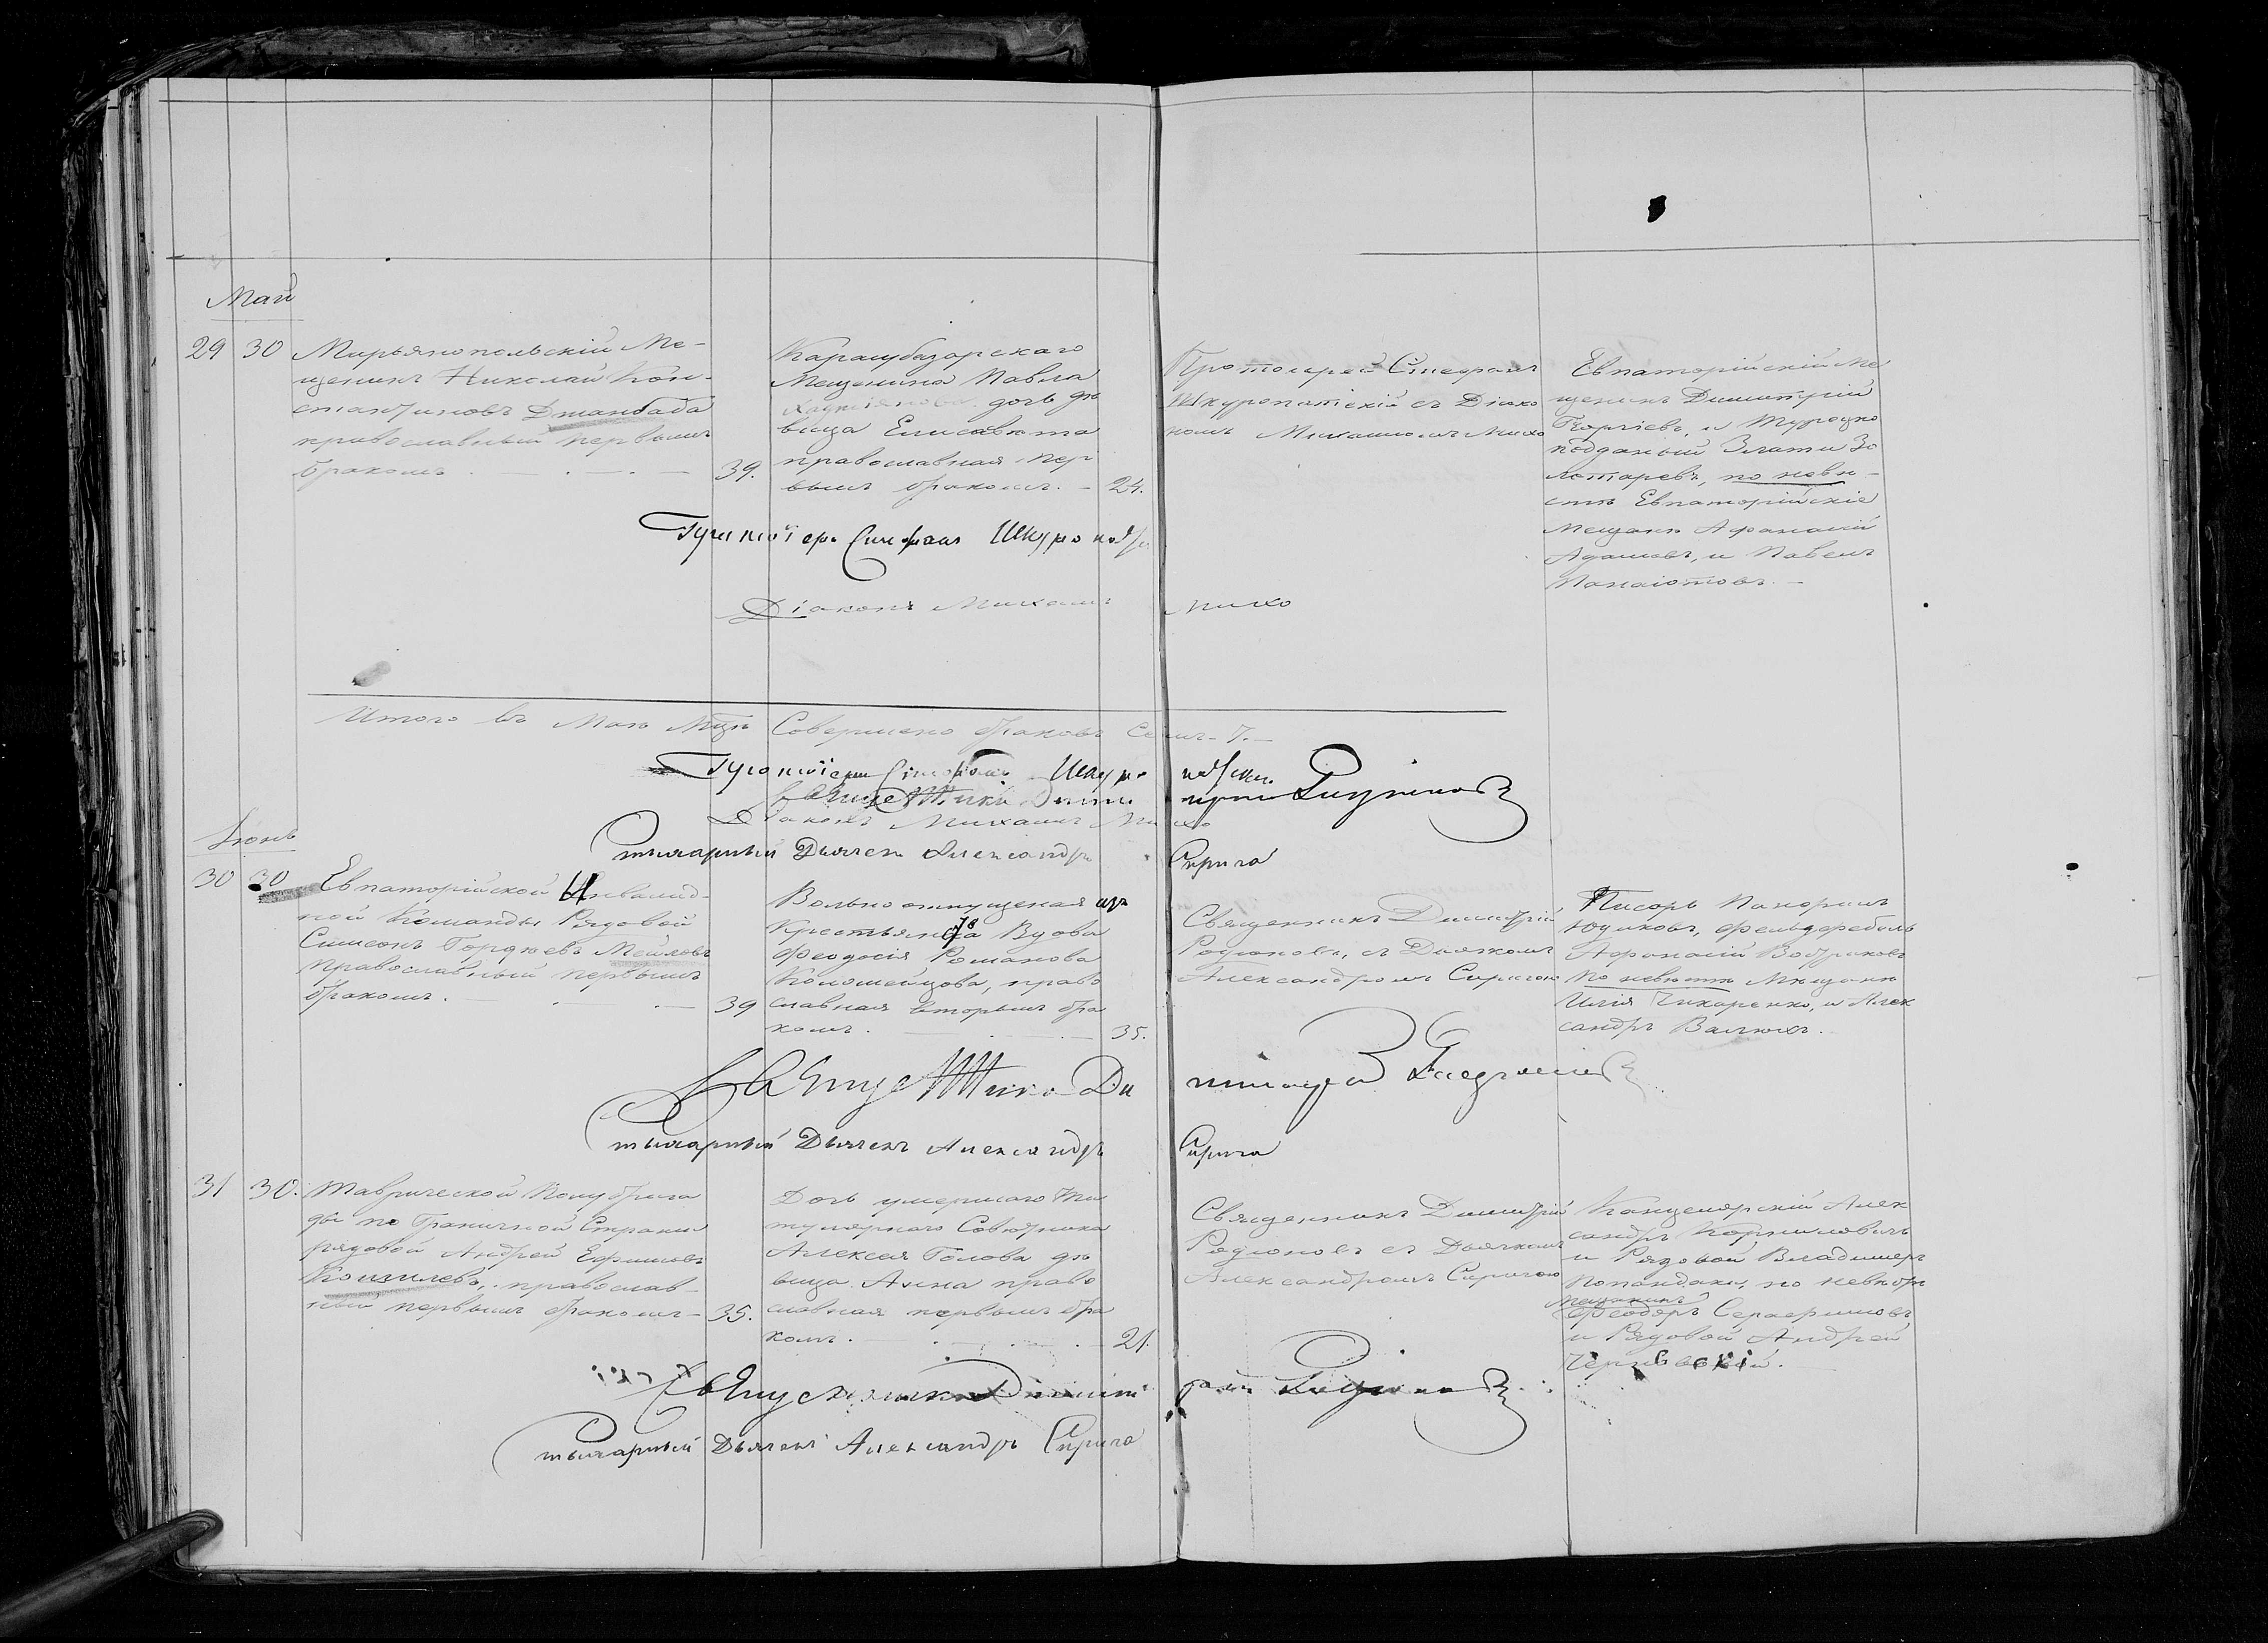 Май
29 30 Марьянопольскій Ме-
щанинъ Николай Кон-
стантиновъ Джанбада
православный первымъ
бракомъ. 39.
Карасубазарскаго
Мещенина Павла
дочь дѣ
вица Елисавета
православная, пер
вымъ бракомъ. 24.
Протоіерей Стефанъ
Шкуропатскій съ Діако
номъ Михаиломъ Михо
Евпаторійскій Ме
щенинъ Димитрій
Георгіевъ, и Турецко
подданый Злати Зо
лотаревъ, по невѣ-
стѣ Евпаторійскіе
Мещане Афанасій
Адамовъ, и Павелъ
Панаіотовъ.
Протоіерей Стефанъ Шкуропатс
Діаконъ Михаилъ Михо
Итого въ Маѣ Мцѣ Совершено браковъ Семь-7.
Протоіерей Стефанъ Шкуропатскій
Священникъ Димитрій Родіоновъ
Діаконъ Михаилъ Михо
Дьячекъ Александръ Сирига
Іюнь
30 30 Евпаторійской Инвалид-
ной Команды Рядовой
Симеонъ Гордѣевъ Мейловъ
православный первымъ
бракомъ. 39
Вольно отпущеная изъ
Крестьянъ Вдова
Феодосія Романова
Коломейцова, право
славная вторымъ бра
комъ. 35.
Священникъ Димитрій
Родіоновъ, съ Дьячкомъ
Александромъ Сиригою
Писарь Панфилъ
Юдиковъ, фельдфебель
Афанасій Вобриковъ
по невѣстѣ Мещане
Илія Чихаренко, и Алек
сандръ Валюхъ.
Священника Димитрій Родіоновъ
Дьячекъ Александръ Сирига
31 30. Таврической Полубрига
ды по Граничной Стражи
рядовой Андрей Ефимовъ
православ-
ный первымъ бракомъ- 35.
Дочь умершаго Ти
тулярнаго Совѣтника
Алексея Голова дѣ
вица Анна право
славная первымъ бра
комъ. 21.
Священникъ Димитрій
Родіоновъ съ Дьячкомъ
Александромъ Сиригою
Канцелярскій Алек
сандръ Корниловичъ
и Рядовой Владимеръ
Попандаки, по невѣстѣ
Мещанинъ
Феодоръ Серафимовъ
и Рядовой Андрей
Священника Димитрій Родіоновъ
Дьячекъ Александръ Сирига